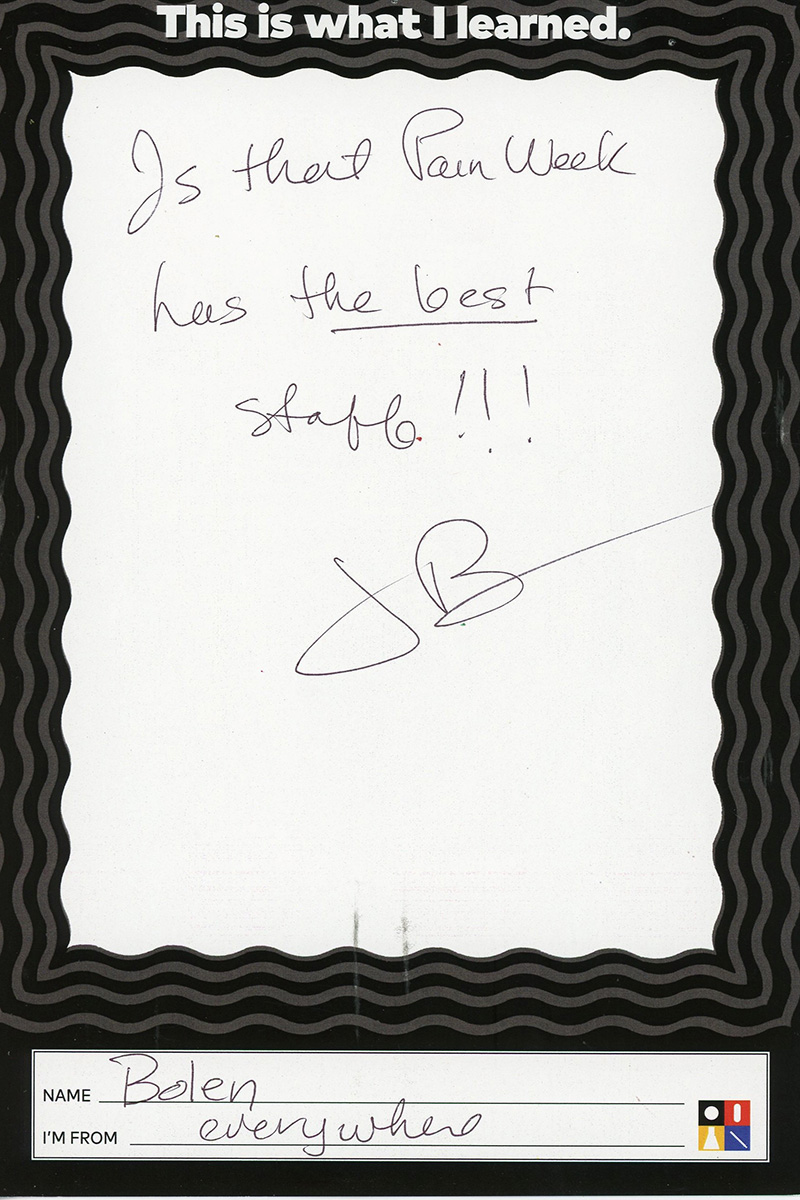 This is what I learned.
Is that Pain Week
has the best
staff!!!
JB
NAME Bolen
I'M FROM everywhere